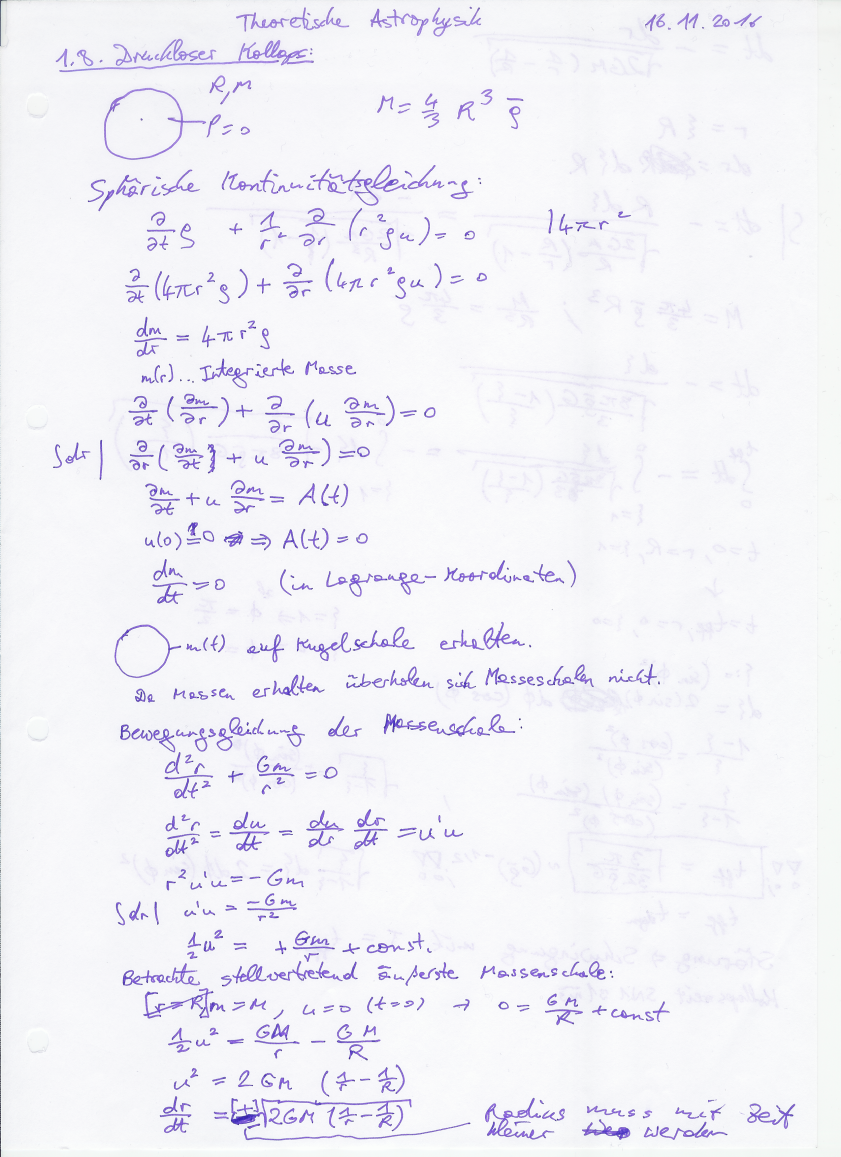 Theoretische Astrophysik 16.11.2016
1.8. Druckloser Kollaps:
R, M
P=0
M = 4/3 R³ ρ̄
Sphärische Kontinuitätsgleichung:
∂/∂t ρ + 1/r² ∂/∂r (r²ρu) = 0 |4πr²
∂/∂t (4πr²ρ) + ∂/∂r (4πr²ρu) = 0
dm/dr = 4πr²ρ
m(r)... Integrierte Masse
∂/∂t (∂m/∂r) + ∂/∂r (u ∂m/∂r) = 0
∫dr | ∂/∂r (∂m/∂t + u ∂m/∂r) = 0
∂m/∂t + u ∂m/∂r = A(t)
u(0) = 0 ⇒ A(t) = 0
dm/dt = 0 (in Lagrange-Koordinaten)
m(t) auf Kugelschale erhalten.
Da Massen erhalten überholen sich Masseschalen nicht.
Bewegungsgleichung der Massenschale:
d²r/dt² + Gm/r² = 0
d²r/dt² = du/dt = du/dr dr/dt = u'u
r²u'u = -Gm
∫dr | u'u = -Gm/r²
1/2 u² = +Gm/r + const.
Betrachte stellvertretend äußerste Massenschale:
[r=R] m=M, u=0 (t=0) → 0 = GM/R + const
1/2 u² = GM/r - GM/R
u² = 2GM (1/r - 1/R)
dr/dt = [±] √2GM (1/r - 1/R) Radius muss mit Zeit
kleiner werden